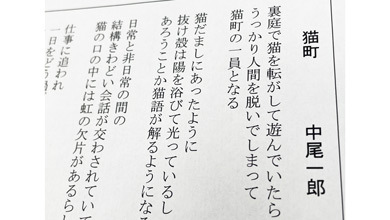 猫町　中尾一郎
裏庭で猫を転がして遊んでいたら
うっかり人間を脱いでしまって
猫町の一員となる
猫だましにあったように
抜け殻は陽を浴びて光っているし
あろうことか猫語が解るようになる
日常と非日常の間の
結構きわどい会話が交わされていて
猫の口の中には虹の欠片があるらし
仕事に追われ
一日をどう過